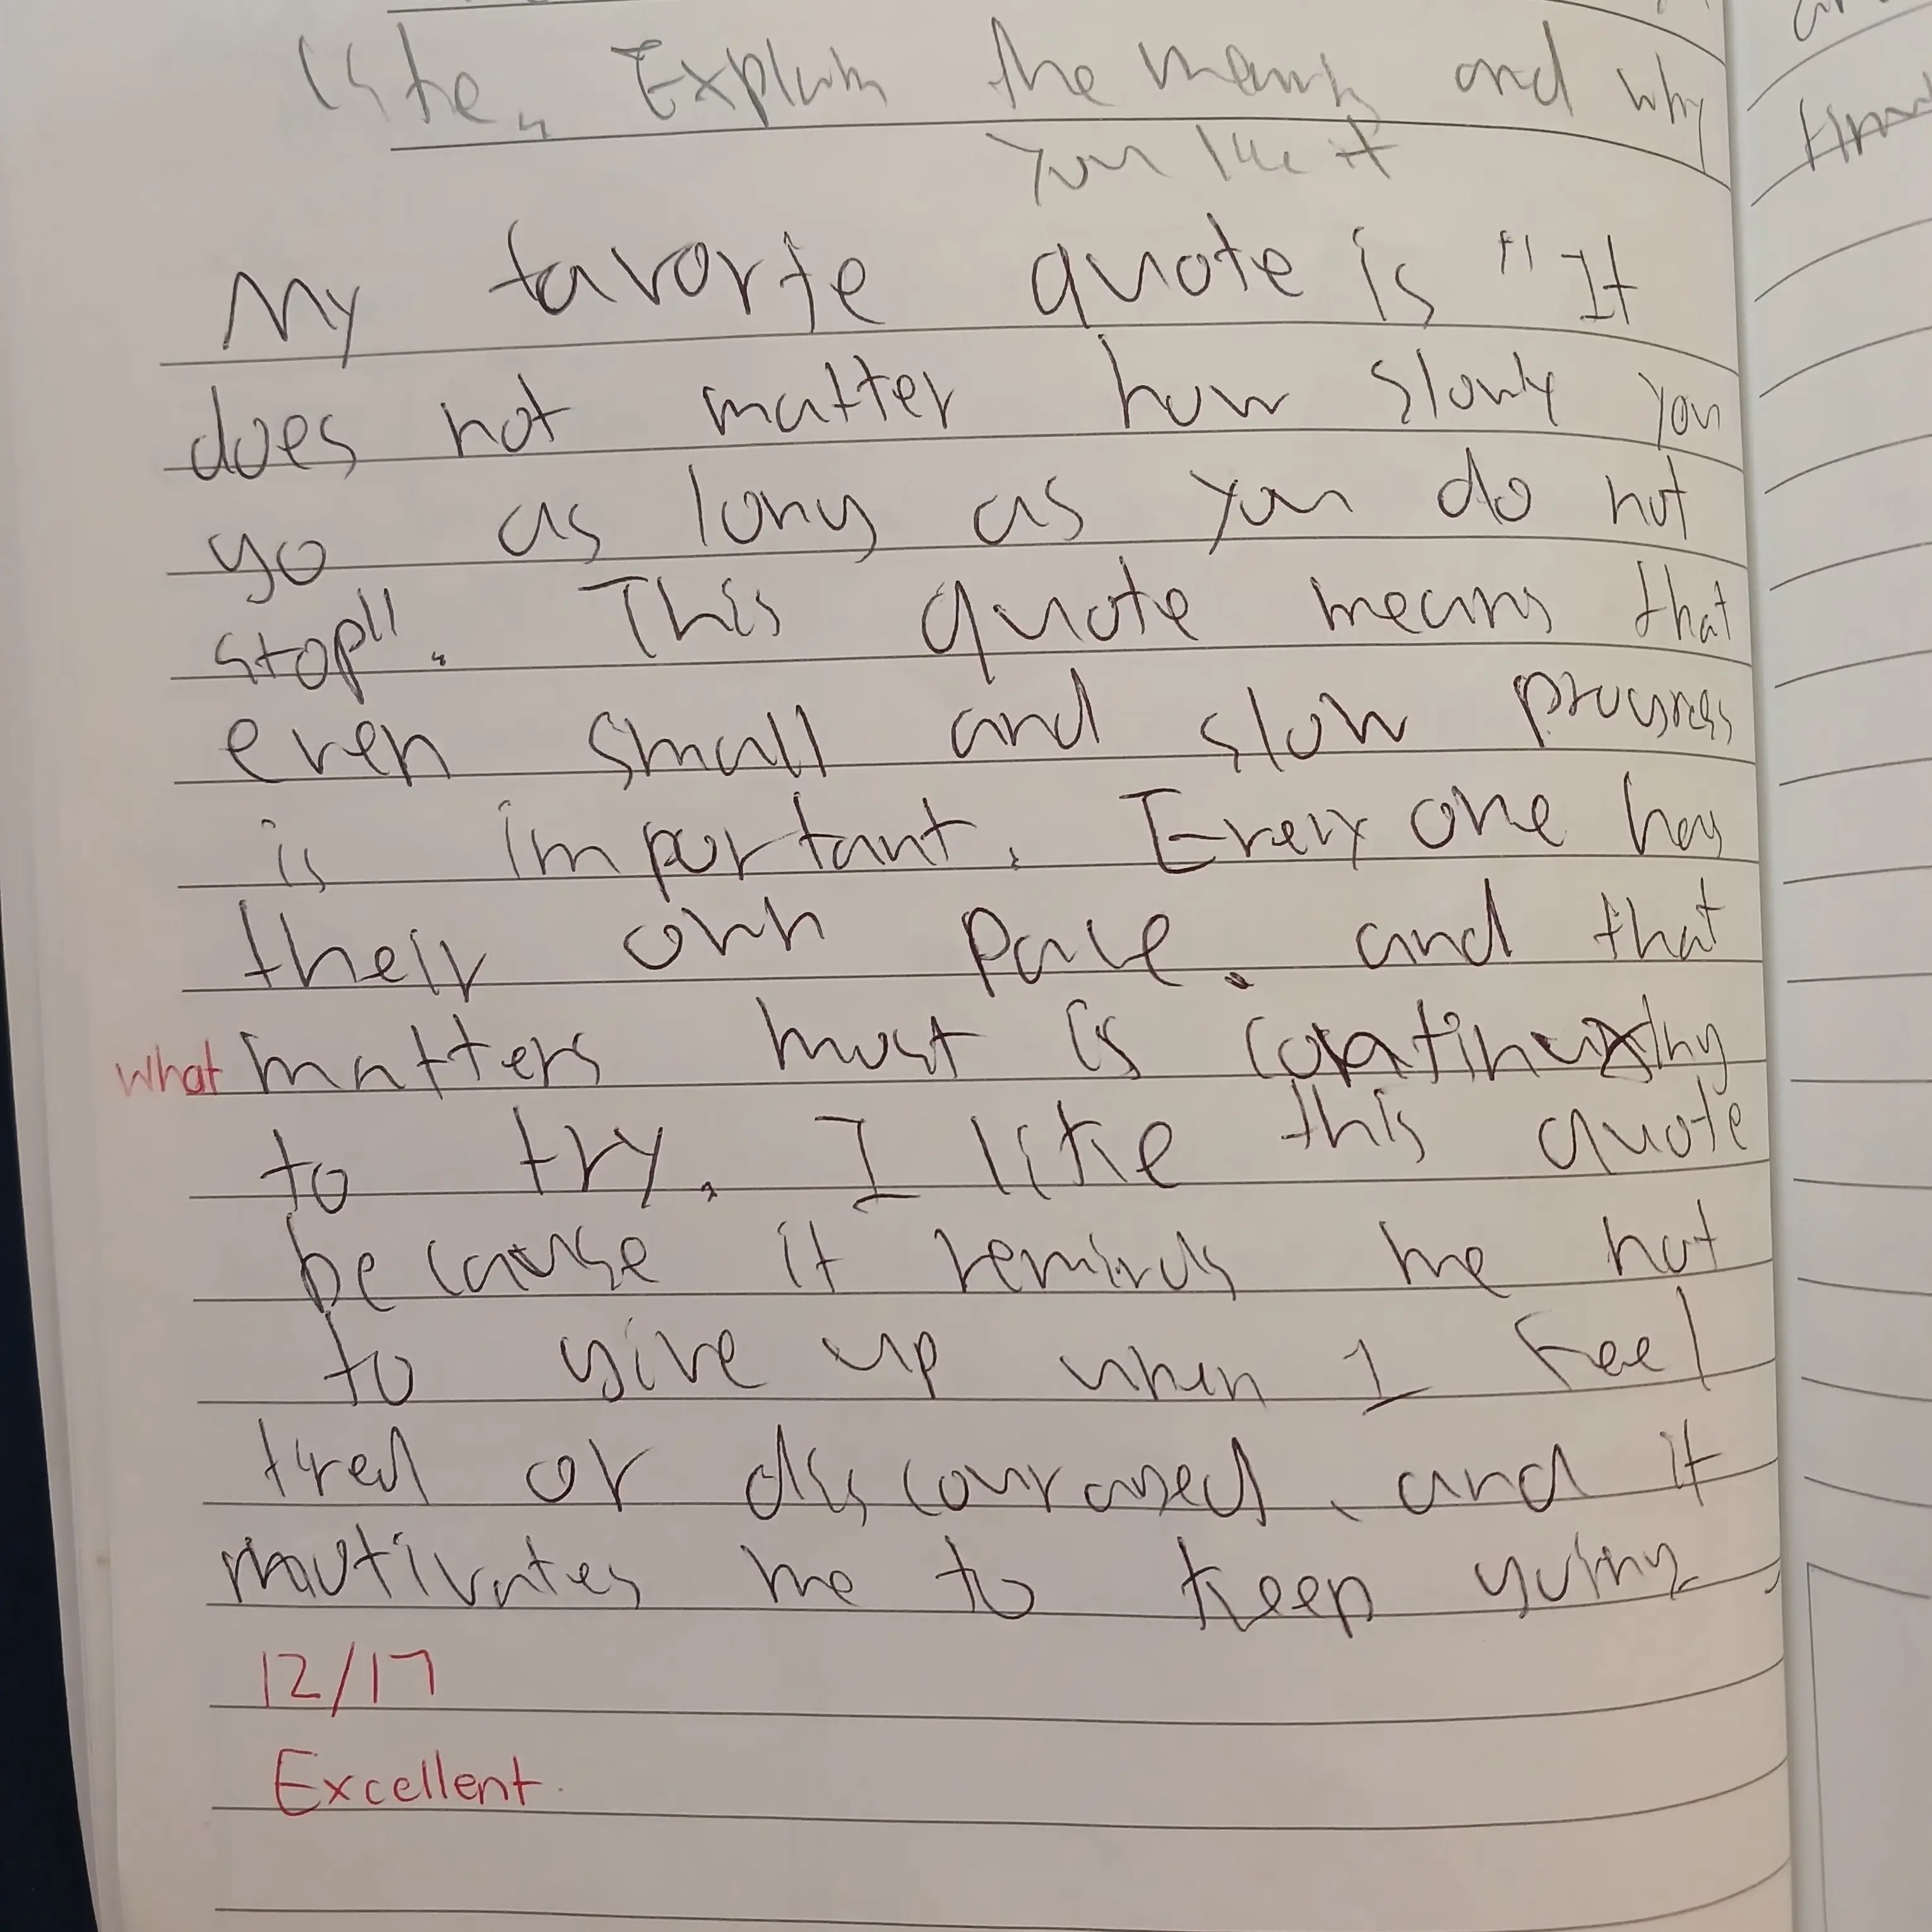 Explain the meanh and why
you like it
My favorite quote is "It
does not matter how slowly you
go as long as you do not
stop". This quote means that
even small and slow progress
is important. Every one has
their own pace. and that
what matters most is continuing
to try. I like this quote
because it reminds me not
to give up when I feel
tired or discouraged, and it
motivates me to keep going.
12/17
Excellent.